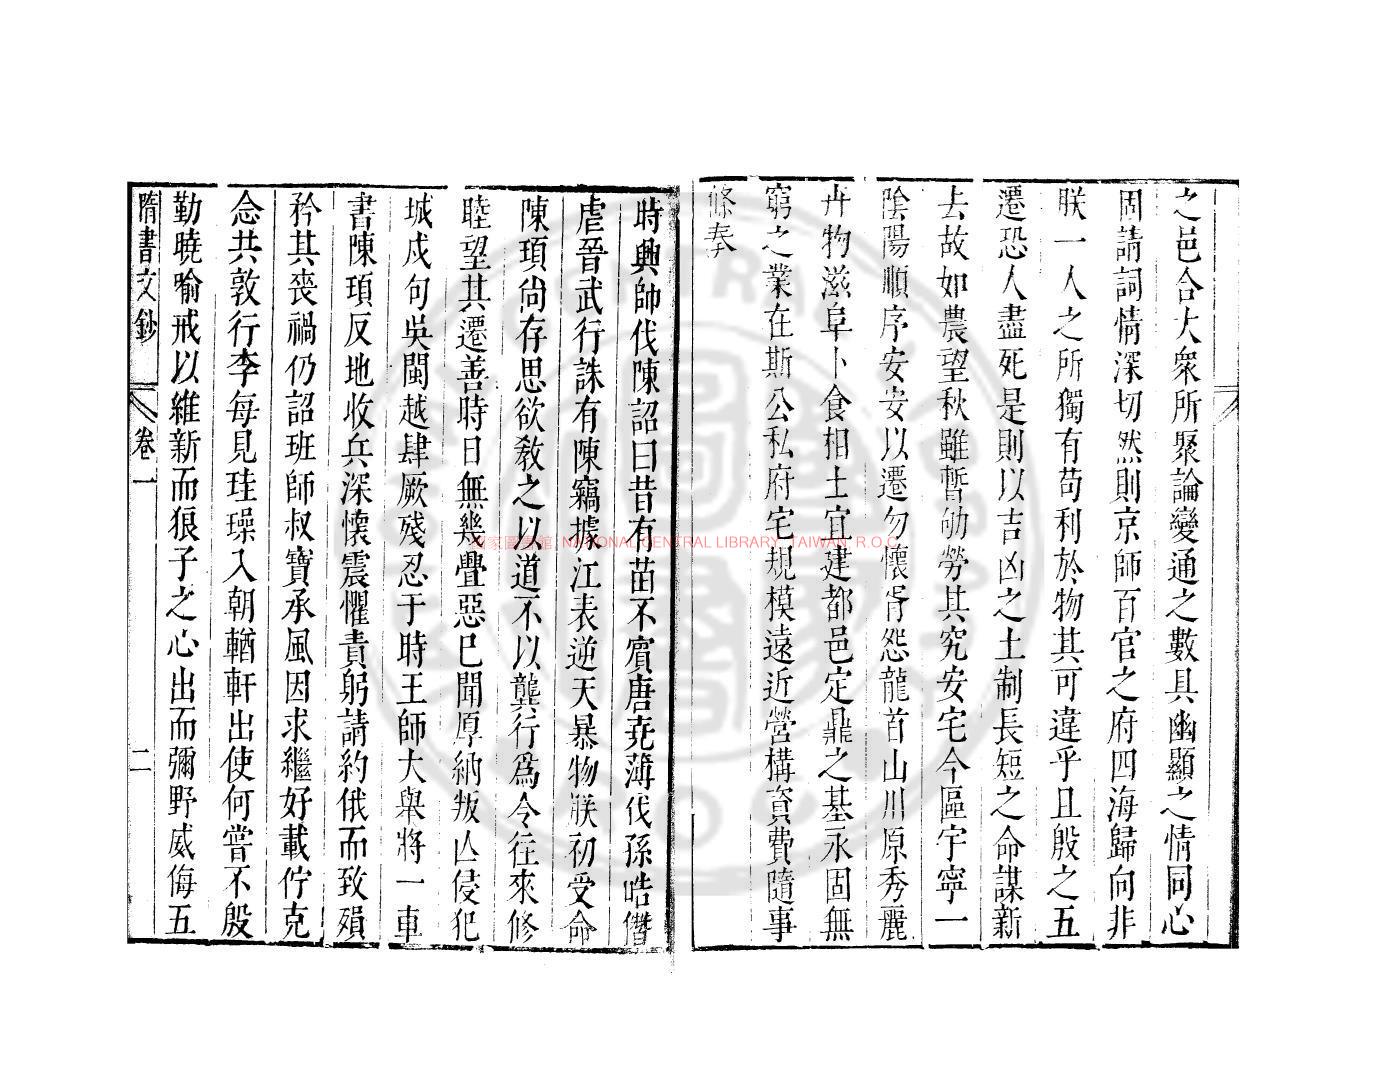 之邑合大衆所聚論變通之數具幽顯之情同心
固請詞情深切然則京師百官之府四海歸向非
朕一人之所獨有苟利於物其可違乎且殷之五
遷恐人盡死是則以吉凶之土制長短之命謀新
去故如農望秋雖暫劬勞其究安宅今區宇寧一
陰陽順序安安以遷勿懷胥怨龍首山川原秀麗
卉物滋阜卜食相土宜建都邑定鼎之基永固無
窮之業在斯公私府宅規模遠近營構資費隨事
條奏
時興師伐陳詔曰昔有苗不賓唐堯薄伐孫晧僭
虐晉武行誅有陳竊據江表逆天暴物朕初受命
陳頊尚存思欲教之以道不以龔行爲令往來修
睦望其遷善時日無幾釁惡已聞厚納叛亾侵犯
城戍句吳閩越肆厥殘忍于時王師大舉將一車
書陳頊反地收兵深懷震懼責躬請約俄而致殞
矜其喪禍仍詔班師叔寶承風因求繼好載佇克
念共敦行李每見珪璪入朝輶軒出使何嘗不殷
勤曉喻戒以維新而狼子之心出而彌野威侮五
隋書文鈔
卷一
二
國家圖書館 NATIONAL CENTRAL LIBRARY, TAIWAN, R.O.C.